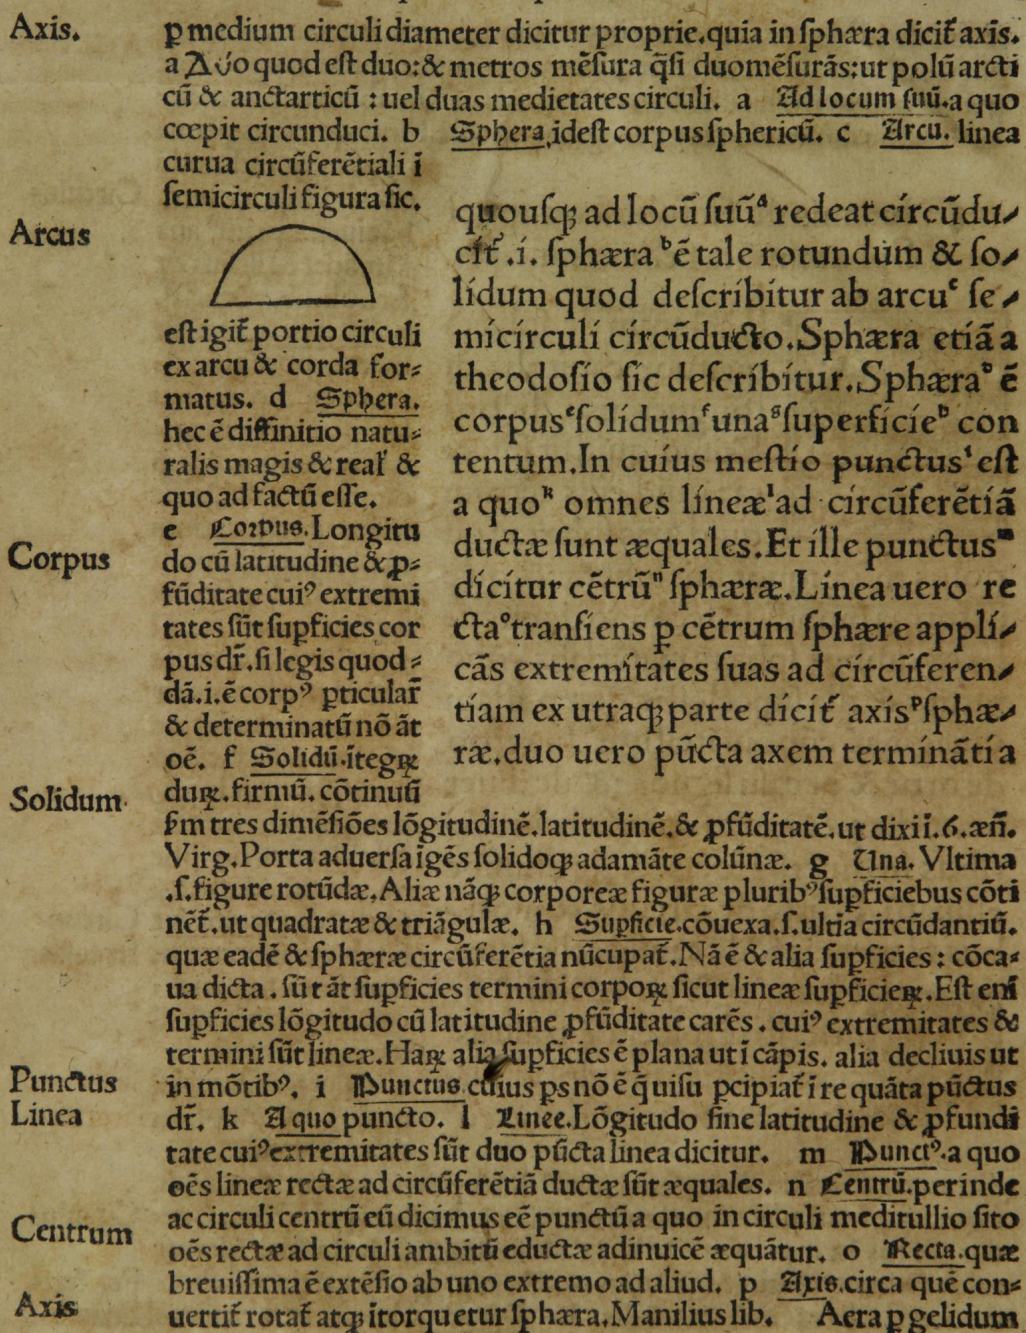 Axis.
p medium circuli diameter dicitur proprie.quia in ſphæra dicit̃ axis.
a Δύο quod eſt duo:& metros mẽſura q̃ſi duomẽſurãs:ut polũ arcti
cũ & anctarticũ : uel duas medietates circuli. a Ad locum ſuũ.a quo
cœpit circunduci. b Sphera.ideſt corpus ſphericũ. c Arcu. linea
curua circũferẽtiali ĩ
ſemicirculi figura ſic.
Arcus
eſt igit̃ portio circuli
ex arcu & corda for⸗
matus. d Sphera.
hec ẽ diffinitio natu⸗
ralis magis & real̃ &
quo ad factũ eſſe.
e Corpus.Longitu
Corpus
do cũ latitudine & ꝓ⸗
fũditate cuiꝰ extremi
tates ſũt ſupficies cor
pus dr̃.ſi legis quod⸗
dã.i.ẽ corpꝰ pticular̃
& determinatũ nõ ãt
oẽ. f Solidũ.ĩtegꝝ
Solidum
duꝝ.firmũ.cõtinuũ
quouſqꝫ ad locũ ſuũᵃ redeat circũdu⸗
cit̃ .i. ſphæra ᵇ ẽ tale rotundum & ſo⸗
lidum quod deſcribitur ab arcuᶜ ſe⸗
micirculi circũducto.Sphæra etiã a
theodoſio ſic deſcribitur.Sphæraᵈ ẽ
corpusᵉ ſolidumᶠ unaᵍ ſuperficieʰ con
tentum.In cuius meſtio punctusⁱ eſt
a quoᵏ omnes lineæˡ ad circũferẽtiã
ductæ ſunt æquales.Et ille punctusᵐ
dicitur cẽtrũⁿ ſphæræ.Linea uero re
ctaᵒ tranſiens p cẽtrum ſphære appli⸗
cãs extremitates ſuas ad circũferen⸗
tiam ex utraqꝫ parte dicit̃ axisᵖ ſphæ⸗
ræ.duo uero pũcta axem terminãtia
ſm tres dimẽſiões lõgitudinẽ.latitudinẽ.& ꝓfũditatẽ.ut dixi ĩ.6.æñ.
Virg.Porta aduerſa igẽs ſolidoqꝫ adamãte colũnæ. g Una.Vltima
.ſ.figure rotũdæ.Aliæ nãqꝫ corporeæ figuræ pluribꝰ ſupficiebus cõti
nẽt̃.ut quadratæ & triãgulæ. h Supficie.cõuexa.ſ.ultia circũdantiũ.
quæ eadẽ & ſphæræ circũferẽtia nũcupat̃.Nã ẽ & alia ſupficies : cõca⸗
ua dicta . ſũt ãt ſupficies termini corpoꝝ ſicut lineæ ſupficieꝝ.Eſt enĩ
ſupficies lõgitudo cũ latitudine ꝓfũditate carẽs . cuiꝰ extremitates &
termini ſũt lineæ.Haꝝ alia ſupficies ẽ plana ut ĩ cãpis. alia decliuis ut
Punctus
in mõtibꝰ. i Punctus.cuius ps nõ ẽ q̃ uiſu pcipiat̃ ĩ re quãta pũctus
Linea
dr̃. k A quo puncto. l Linee.Lõgitudo ſine latitudine & ꝓfundi
tate cuiꝰ extremitates ſũt duo pũcta linea dicitur. m Punctꝰ.a quo
oẽs lineæ rectæ ad circũferẽtiã ductæ ſũt æquales. n Centrũ.perinde
Centrum
ac circuli centrũ eũ dicimus eẽ punctũ a quo in circuli meditullio ſito
oẽs rectæ ad circuli ambitũ eductæ adinuicẽ æquãtur. o Recta.quæ
breuiſſima ẽ extẽſio ab uno extremo ad aliud. p Axis.circa quẽ con⸗
Axis
uertit̃ rotat̃ atqꝫ ĩtorquetur ſphæra.Manilius lib. Aera p gelidum